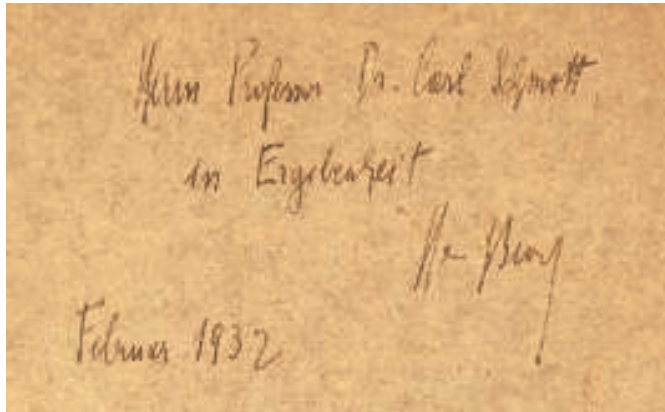 Herrn Professor Dr. Carl Schmitt,
in Ergebenheit
Februar 1932